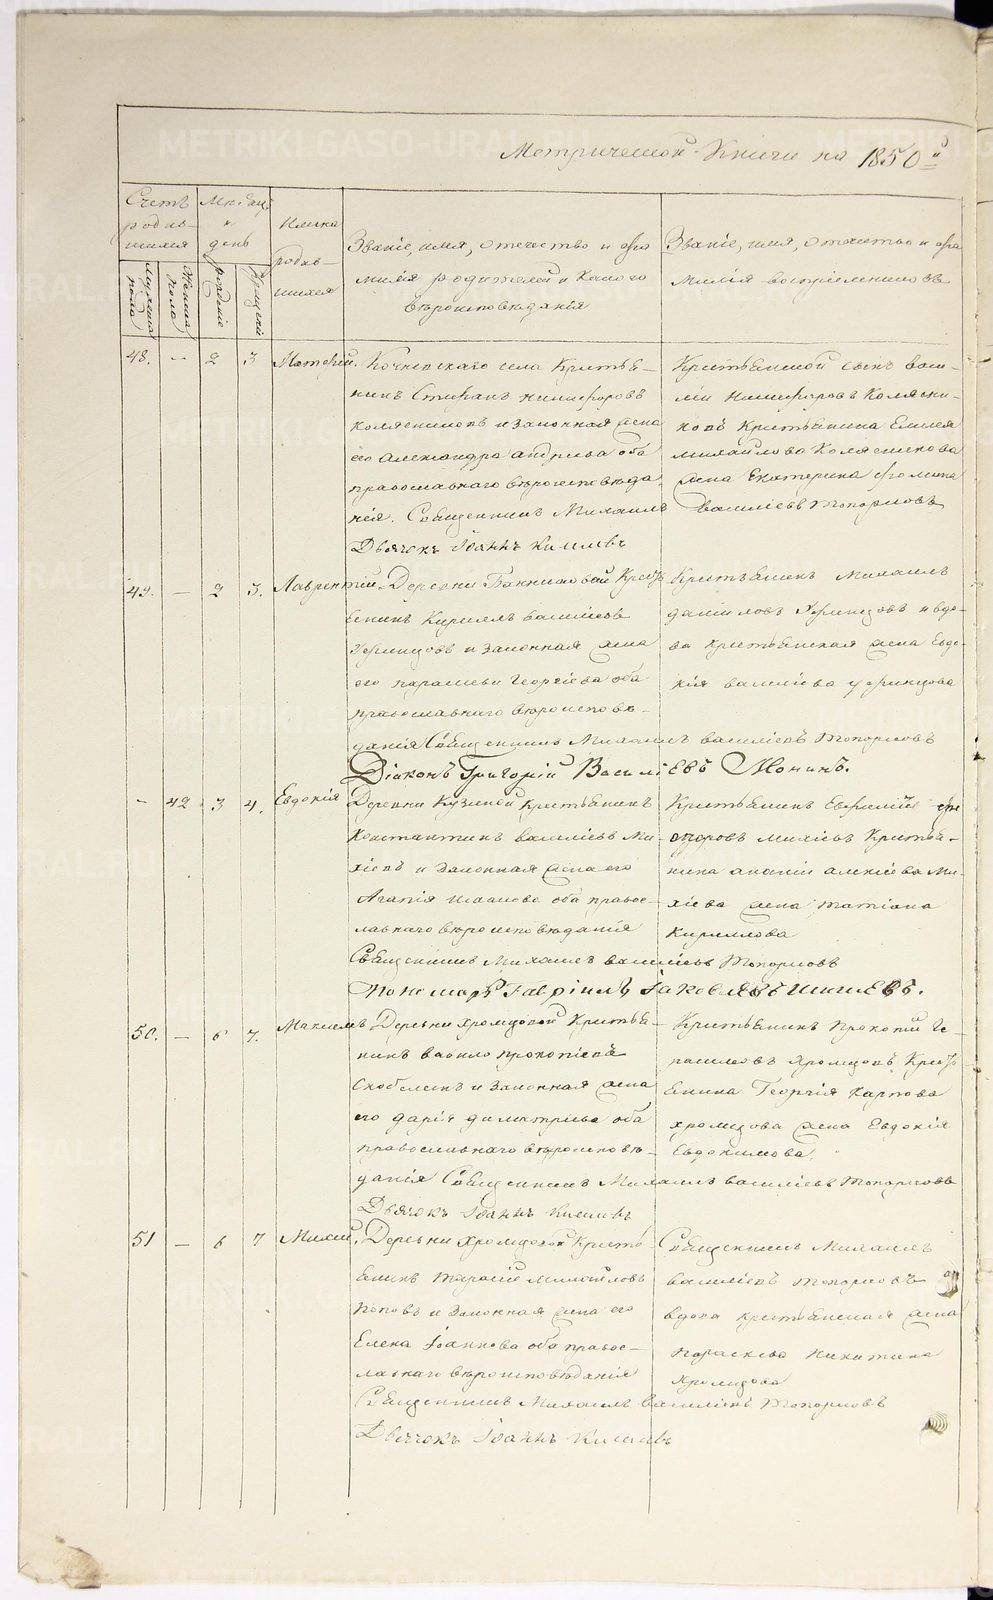 Метрической Книги на 1850й
Счетъ родив-шихся
Мужеска пола
Женска пола
Мѣсяцъ и день
рожденіе
крещеніе
Имена родив-шихся
Званіе, имя, отечество и фа
милія родителей и какого
вѣроисповѣданія
Званіе, имя, отечество и фа
милія воспріемниковъ
48. — 2 3
Кочневскаго села Крестья-
нинъ Стефанъ Никифоровъ
Колясниковъ и законная жена
его Александра Андреева оба
православнаго вѣроисповѣда
нія. Священникъ Михаилъ Васильевъ Топорковъ
Дьячекъ Іоаннъ Киселевъ
Крестьянской сынъ Васи-
лій Никифоровъ Колясни-
ковъ Крестьянина
Михайлова Колясникова
жена Екатерина Фомина
49. — 2 3. Лаврентій
Деревни
янинъ Кириллъ Васильевъ
и законная жена
его Параскева Георгіева оба
православнаго вѣроисповѣ-
данія Священникъ Михаилъ Васильевъ Топорковъ
Діаконъ Григорій Васильевъ
Крестьянинъ Михаилъ
Даніиловъ и вдо-
ва крестьянская жена Евдо-
кія Васильева
— 42 3 4. Евдокія
Деревни Кузиной Крестьянинъ
Константинъ Васильевъ Ми-
хіевъ и законная жена его
Агапія Иванова оба правос-
лавнаго вѣроисповѣданія
Священникъ Михаилъ Васильевъ Топорковъ
Пономарь Гавріилъ Іаковлевъ
Крестьянинъ Евфимій Фе
одоровъ Михіевъ Крестья-
нина Ананіи Алексіева Ми-
хіева жена Татіана
Кириллова
50. — 6 7. Максимъ
Деревни Хромцовой Крестья-
нинъ Вавило Прокопіевъ
и законная жена
его Дарія Димитріева оба
православнаго вѣроисповѣ-
данія Священникъ Михаилъ Васильевъ Топорковъ
Дьячекъ Іоаннъ Киселевъ
Крестьянинъ Прокопій Ге-
расимовъ Хромцовъ Кресть
янина Георгія Карпова
Хромцова жена Евдокія
Евдокимова.
51 — 6 7
Деревни Хромцовой Кресть
янинъ Тарасій Михайловъ
Поповъ и законная жена его
Елена Іоаннова оба правос-
лавнаго вѣроисповѣданія
Священникъ Михаилъ Васильевъ Топорковъ
Дьячекъ Іоаннъ Киселевъ
Священникъ Михаилъ
Васильевъ Топорковъ
вдова крестьянская жена
Параскева Никитина
Хромцова